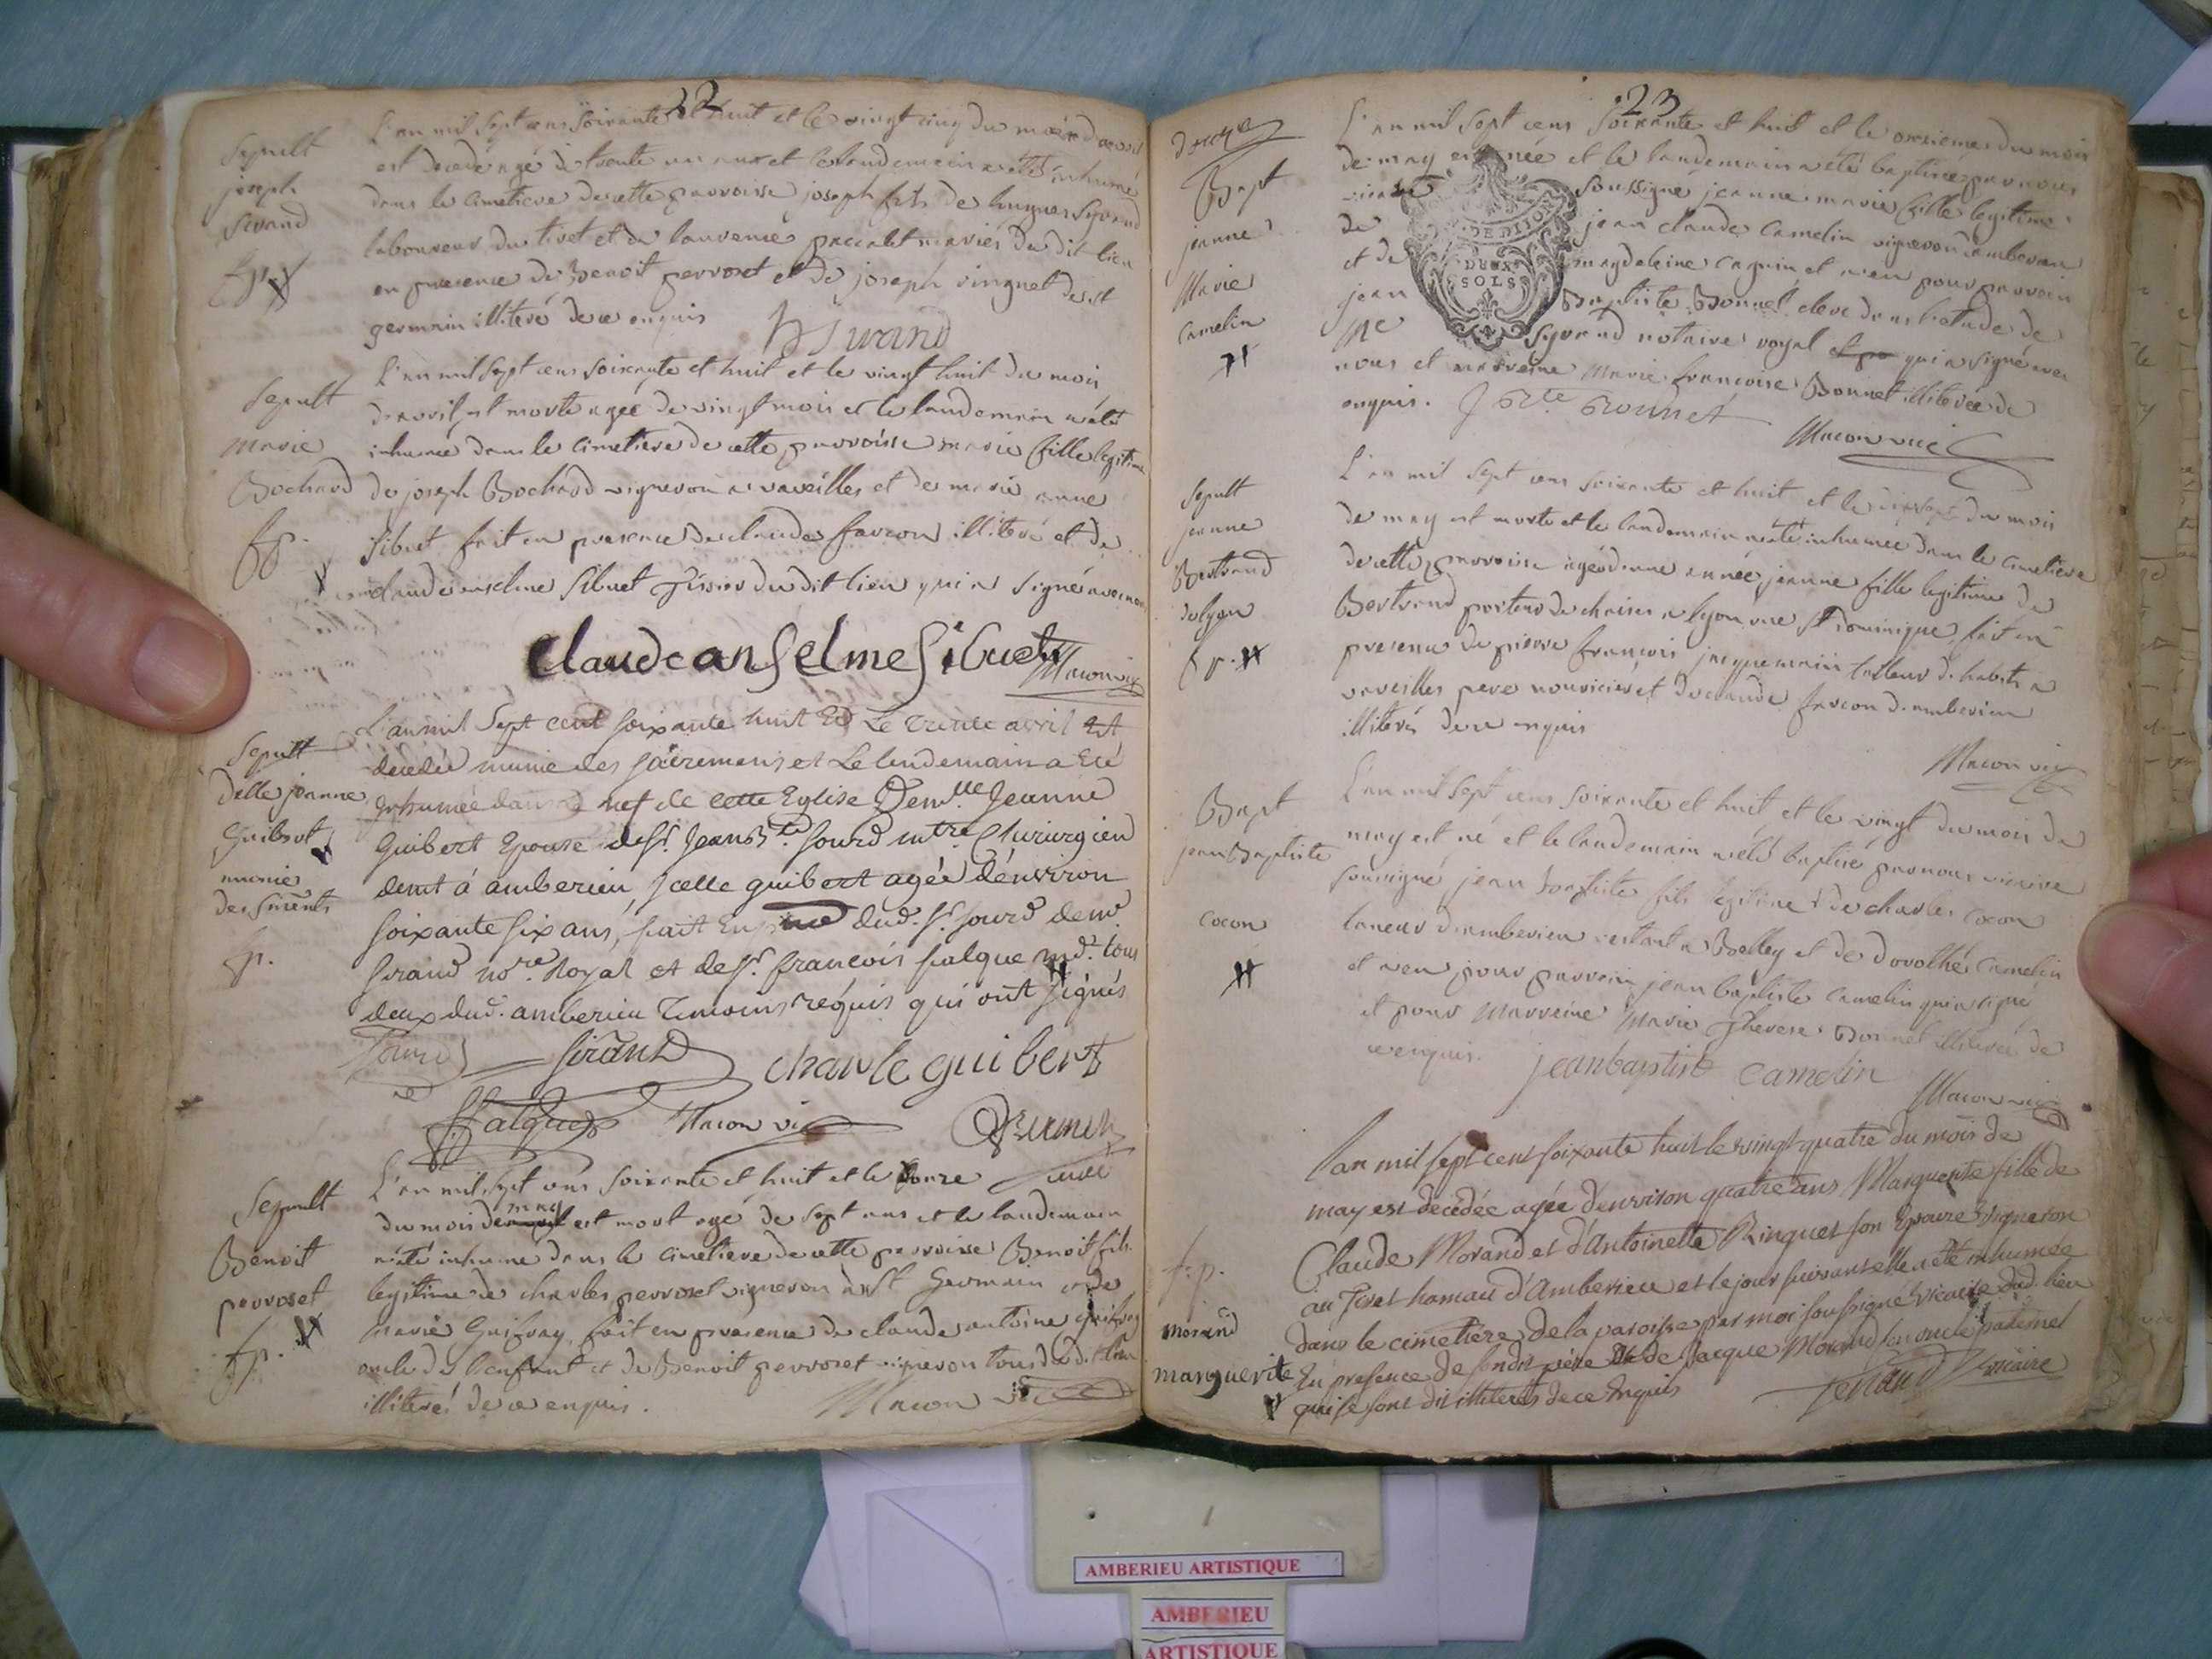 22
Sepult
joseph
Sirand
fp.
L'an mil sept cens soixante et huit et le vingt cinq du mois d'avril
est decedé agé de trente un ans et le landemain a été inhumé
dans le cimetiere de cette parroisse joseph fils de hugues Syrand
laboureur du tiret et de laurence mariés du dit lieu
en presence de Benoit perroset et de joseph ringuet de st
germain illiteré de ce enquis
Sirand
Sepult
marie
Bochard
fp.
L'an mil sept cens soixante et huit et le vingt huit du mois
d'avril est morte agée de vingt mois et le landemain a été
inhumée dans le cimetiere de cette parroisse marie fille legitime
de joseph Bochard vigneron a vareilles et de marie anne
Sibuet fait en presence de claude farcon illiteré et de
claude anselme Sibuet du dit lieu qui a signé avec nous
Claude anselme Sibuet
Macon vic
Sepult
delle jeanne
Guibert
munie
des Sacrements
fp.
L'an mil Sept cent soixante huit Et Le trente avril Est
decedée munie des sacremens et Le lendemain a Eté
Inhumée dans la nef de cette Eglise Demlle Jeanne
Guibert Epouse de Sr. Jean Bte. Sourd mtre Chirurgien
demt á amberieu, Icelle guibert agée d'environ
soixante six ans, fait En dud. Sr. Sourd de me
Sirand nore Royal et de Sr. francois falque md. tous
deux dud. amberieu temoins requis qui ont signés
Sourd Sirand Charle guibert
Falque Macon vic
Sepult
Benoit
perroset
fp.
L'an mil sept cens soixante et huit et le douze
du mois de may est mort agé de sept ans et le landemain
a été inhumé dans le cimetiere de cette parroisse Benoit fils
legitime de charles perroset vigneron a St Germain et de
marie Guifray fait en presence de claude antoine guifray
oncle de l'enfant et de Benoit perroset vigneron tous du dit lieu
illiterés de ce enquis.
Macon vic
23
Bapt
jeanne
Marie
Camelin
L'an mil sept cens soixante et huit et le onzieme du mois
de may est née et le landemain a été baptisée par nous
vicaire soussigné jeanne marie fille legitime
de jean claude Camelin vigneron d'amberieu
et de magdeleine et a eu pour parrein
jean Baptiste Bonnet clerc dans l'etude de
Me Syrand notaire royal qui a signé avec
nous et marreine marie francoise Bonnet illiterée de
enquis. J Bte Bonnet
Macon vic
DE DIJON
DEUX
SOLS
Sepult
jeanne
Bertrand
de lyon
fp.
L'an mil sept cens soixante et huit et le dixsept du mois
de may est morte et le landemain a été inhumée dans le cimetiere
de cette parroisse agée d'une année jeanne fille legitime de
Bertrand porteur de chaises a lyon rue St Dominique fait en
presence de pierre françois jacquemain tailleur d'habits a
vareilles pere nouricier et de claude farcon d'amberieu
illiterés de ce enquis
Macon vic
Bapt
jean Baptiste
cocon
L'an mil sept cens soixante et huit et le vingt du mois de
may est né et le landemain a été baptisé par nous vicaire
soussigné jean baptiste fils legitime de charles cocon
taneur d'amberieu restant a Belley et de dorothée Camelin
et a eu pour parrein jean baptiste Camelin qui a signé
et pour marreine Marie Therese Bonnet illiterée de
ce enquis. jean baptiste Camelin
Macon vic
f.p.
morand
marguerite
L'an mil sept cent soixante huit le vingt quatre du mois de
may est decédée agée d'environ quatre ans Marguerite fille de
Claude Morand et d'Antoinette Ringuet son Epouse vigneron
au Tiret hamau d'Amberieu et le jour suivant elle a été inhumée
dans le cimetiére de la paroisse par moi soussigné vicaire dud. lieu
En presence de sondit pére et de Jacque Morand son oncle paternel
qui se sont dit illiterés de ce Enquis
vicaire
AMBERIEU ARTISTIQUE
AMBERIEU
ARTISTIQUE